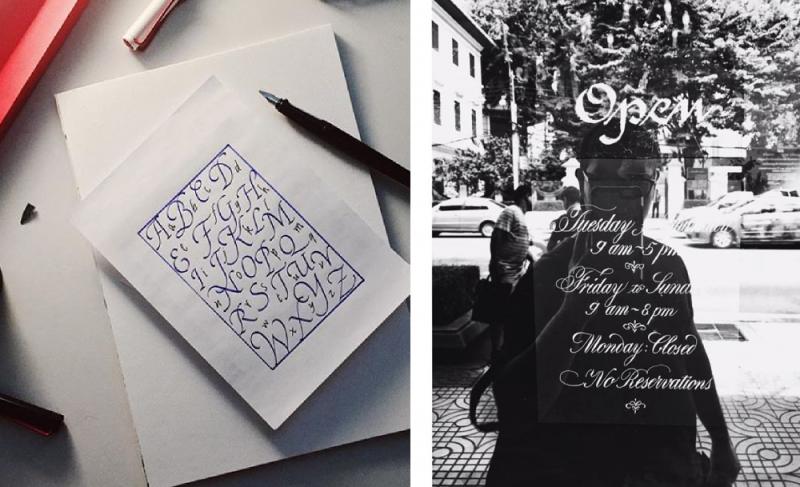 A B C D
E F G H
I J K L M
N O P Q
R S T U V
W X Y Z
Open
Tuesday
9 am~5 pm
Friday to Sunda
9 am~8 pm
Monday: Closed
No Reservations